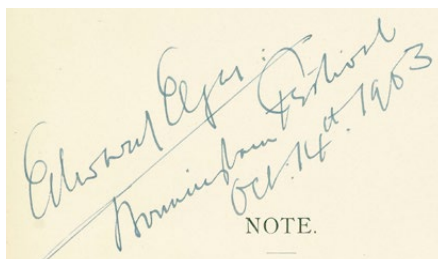 Edward Elgar:
Birmingham Festival
Oct. 14th. 1903
NOTE.